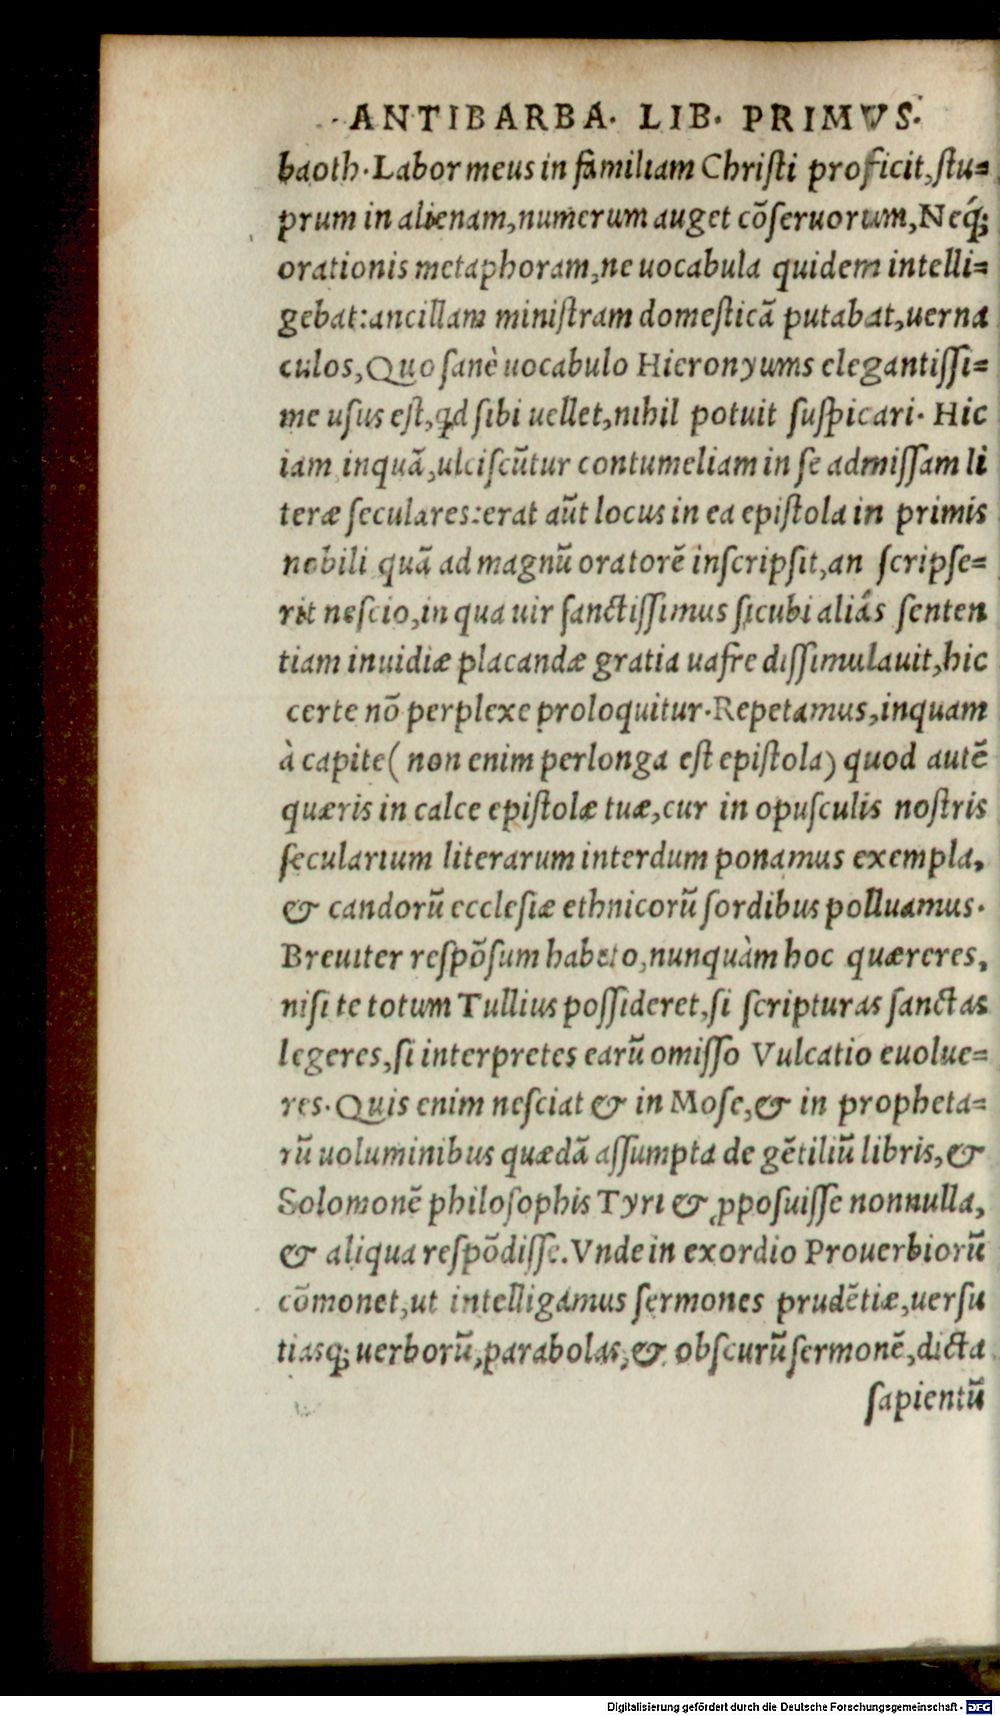 ANTIBARBA. LIB. PRIMVS.
baoth. Labor meus in familiam Christi proficit, stu=
prum in alienam, numerum auget cõseruorum, Neq́;
orationis metaphoram, ne uocabula quidem intelli=
gebat: ancillam ministram domesticã putabat, uerna
culos, Quo sanè uocabulo Hieronyums elegantissi=
me usus est, qd sibi uellet, nihil potuit suspicari. Hic
iam inquã, ulciscũtur contumeliam in se admissam li
teræ seculares: erat aũt locus in ea epistola in primis
nobili quã ad magnũ oratorẽ inscripsit, an scripse=
rit nescio, in qua uir sanctissimus sicubi aliâs senten
tiam inuidiæ placandæ gratia uafre dissimulauit, hic
certe nõ perplexe proloquitur. Repetamus, inquam
à capite ( non enim perlonga est epistola) quod autẽ
quæris in calce epistolæ tuæ, cur in opusculis nostris
secularium literarum interdum ponamus exempla,
& candorũ ecclesiæ ethnicorũ sordibus polluamus.
Breuiter respõsum habeto, nunquàm hoc quæreres,
nisi te totum Tullius possideret, si scripturas sanctas
legeres, si interpretes earũ omisso Vulcatio euolue=
res. Quis enim nesciat & in Mose, & in propheta=
rũ uoluminibus quædã assumpta de gẽtiliũ libris, &
Solomonẽ philosophis Tyri & ꝓposuisse nonnulla,
& aliqua respõdisse. Vnde in exordio Prouerbiorũ
cõmonet, ut intelligamus sermones prudẽtiæ, uersu
tiasq; uerborũ, parabolas, & obscurũ sermonẽ, dicta
sapientũ
Digitalisierung gefördert durch die Deutsche Forschungsgemeinschaft - DFG